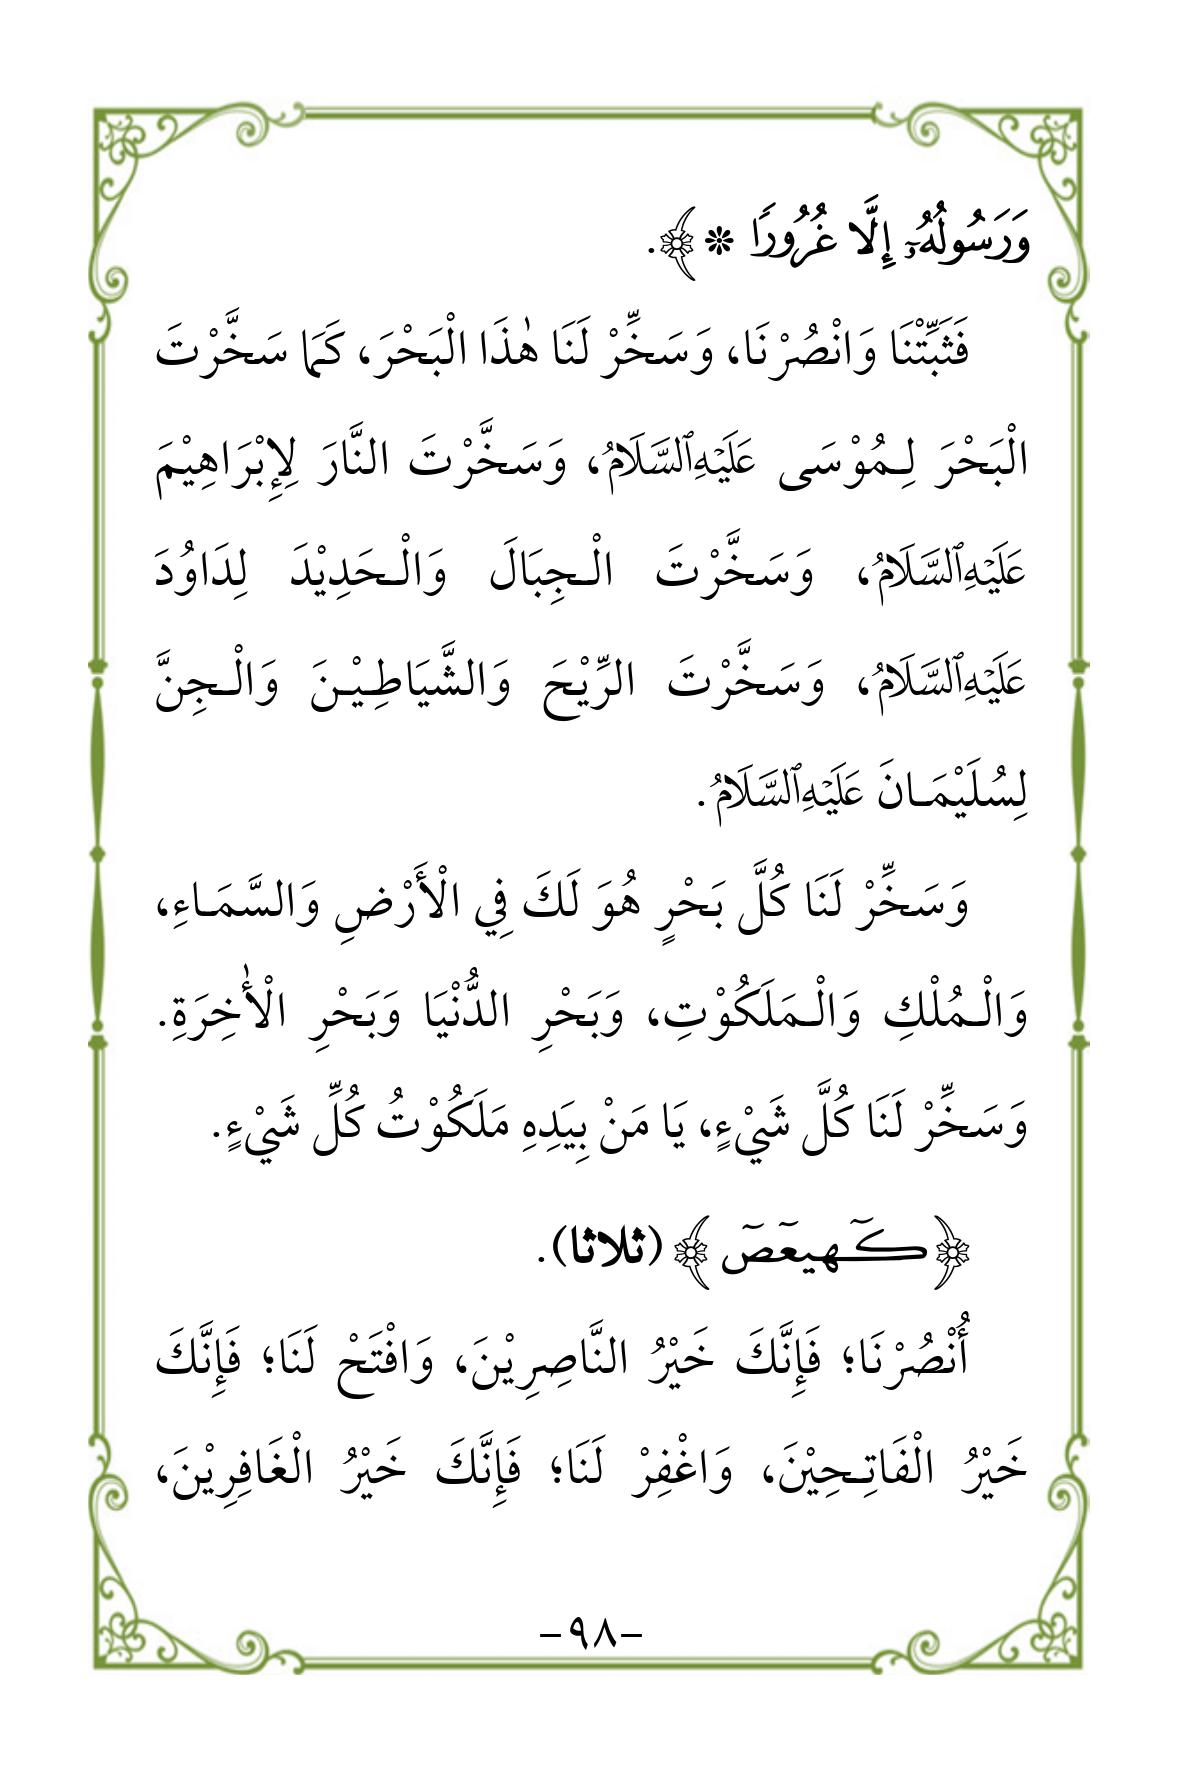 وَرَسُولُهُۥٓ إِلَّا غُرُورًا ❊ ﴾.
فَثَبِّتْنَا وَانْصُرْنَا، وَسَخِّرْ لَنَا هٰذَا الْبَحْرَ، كَمَا سَخَّرْتَ
الْبَحْرَ لِـمُوْسَى عَلَيْهِ ٱلسَّلَامُ، وَسَخَّرْتَ النَّارَ لِإِبْرَاهِيْمَ
عَلَيْهِ ٱلسَّلَامُ، وَسَخَّرْتَ الْـجِبَالَ وَالْـحَدِيْدَ لِدَاوُدَ
عَلَيْهِ ٱلسَّلَامُ، وَسَخَّرْتَ الرِّيْحَ وَالشَّيَاطِـيْـنَ وَالْـجِنَّ
لِسُلَيْمَـانَ عَلَيْهِ ٱلسَّلَامُ.
وَسَخِّرْ لَنَا كُلَّ بَحْرٍ هُوَ لَكَ فِي الْأَرْضِ وَالسَّمَـاءِ،
وَالْـمُلْكِ وَالْـمَلَكُوْتِ، وَبَحْرِ الدُّنْيَا وَبَحْرِ الْأٰخِرَةِ.
وَسَخِّرْ لَنَا كُلَّ شَيْءٍ، يَا مَنْ بِيَدِهِ مَلَكُوْتُ كُلِّ شَيْءٍ.
﴿كٓـهيعٓصٓ ﴾ (ثلاثا).
أُنْصُرْنَا؛ فَإِنَّكَ خَيْرُ النَّاصِرِيْنَ، وَافْتَحْ لَنَا؛ فَإِنَّكَ
خَيْرُ الْفَاتِـحِيْنَ، وَاغْفِرْ لَنَا؛ فَإِنَّكَ خَيْرُ الْغَافِرِيْنَ،
-٩٨-